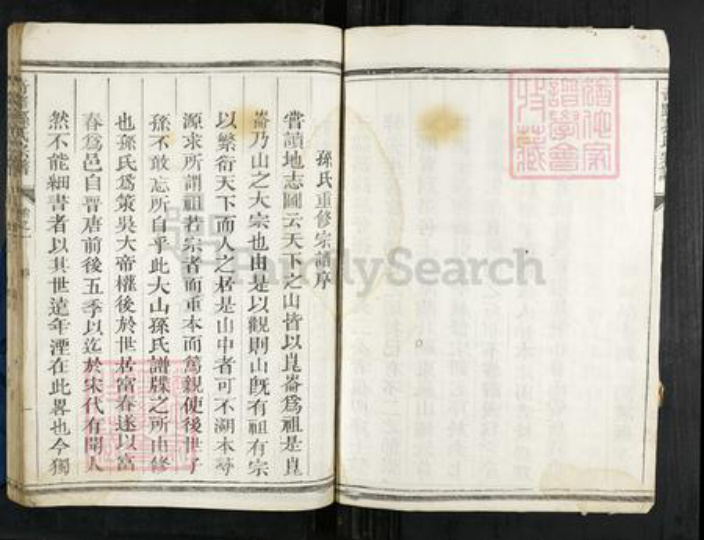 孫氏重修宗譜序
嘗讀地志圖云天下之山皆以崑崙爲祖是崑
崙乃山之大宗也由是以觀則山旣有祖有宗
以繁衍天下而人之居是山中者可不溯本尋
源求所謂祖若宗者而重本而篤親使後世子
孫不敢忘所自乎此大山孫氏譜牒之所由修
也孫氏爲策吳大帝權後於世居富春遂以富
春爲邑自晉唐前後五季以迄於宋代有聞人
然不能細書者以其世遠年湮在此畧也今獨
FamilySearch